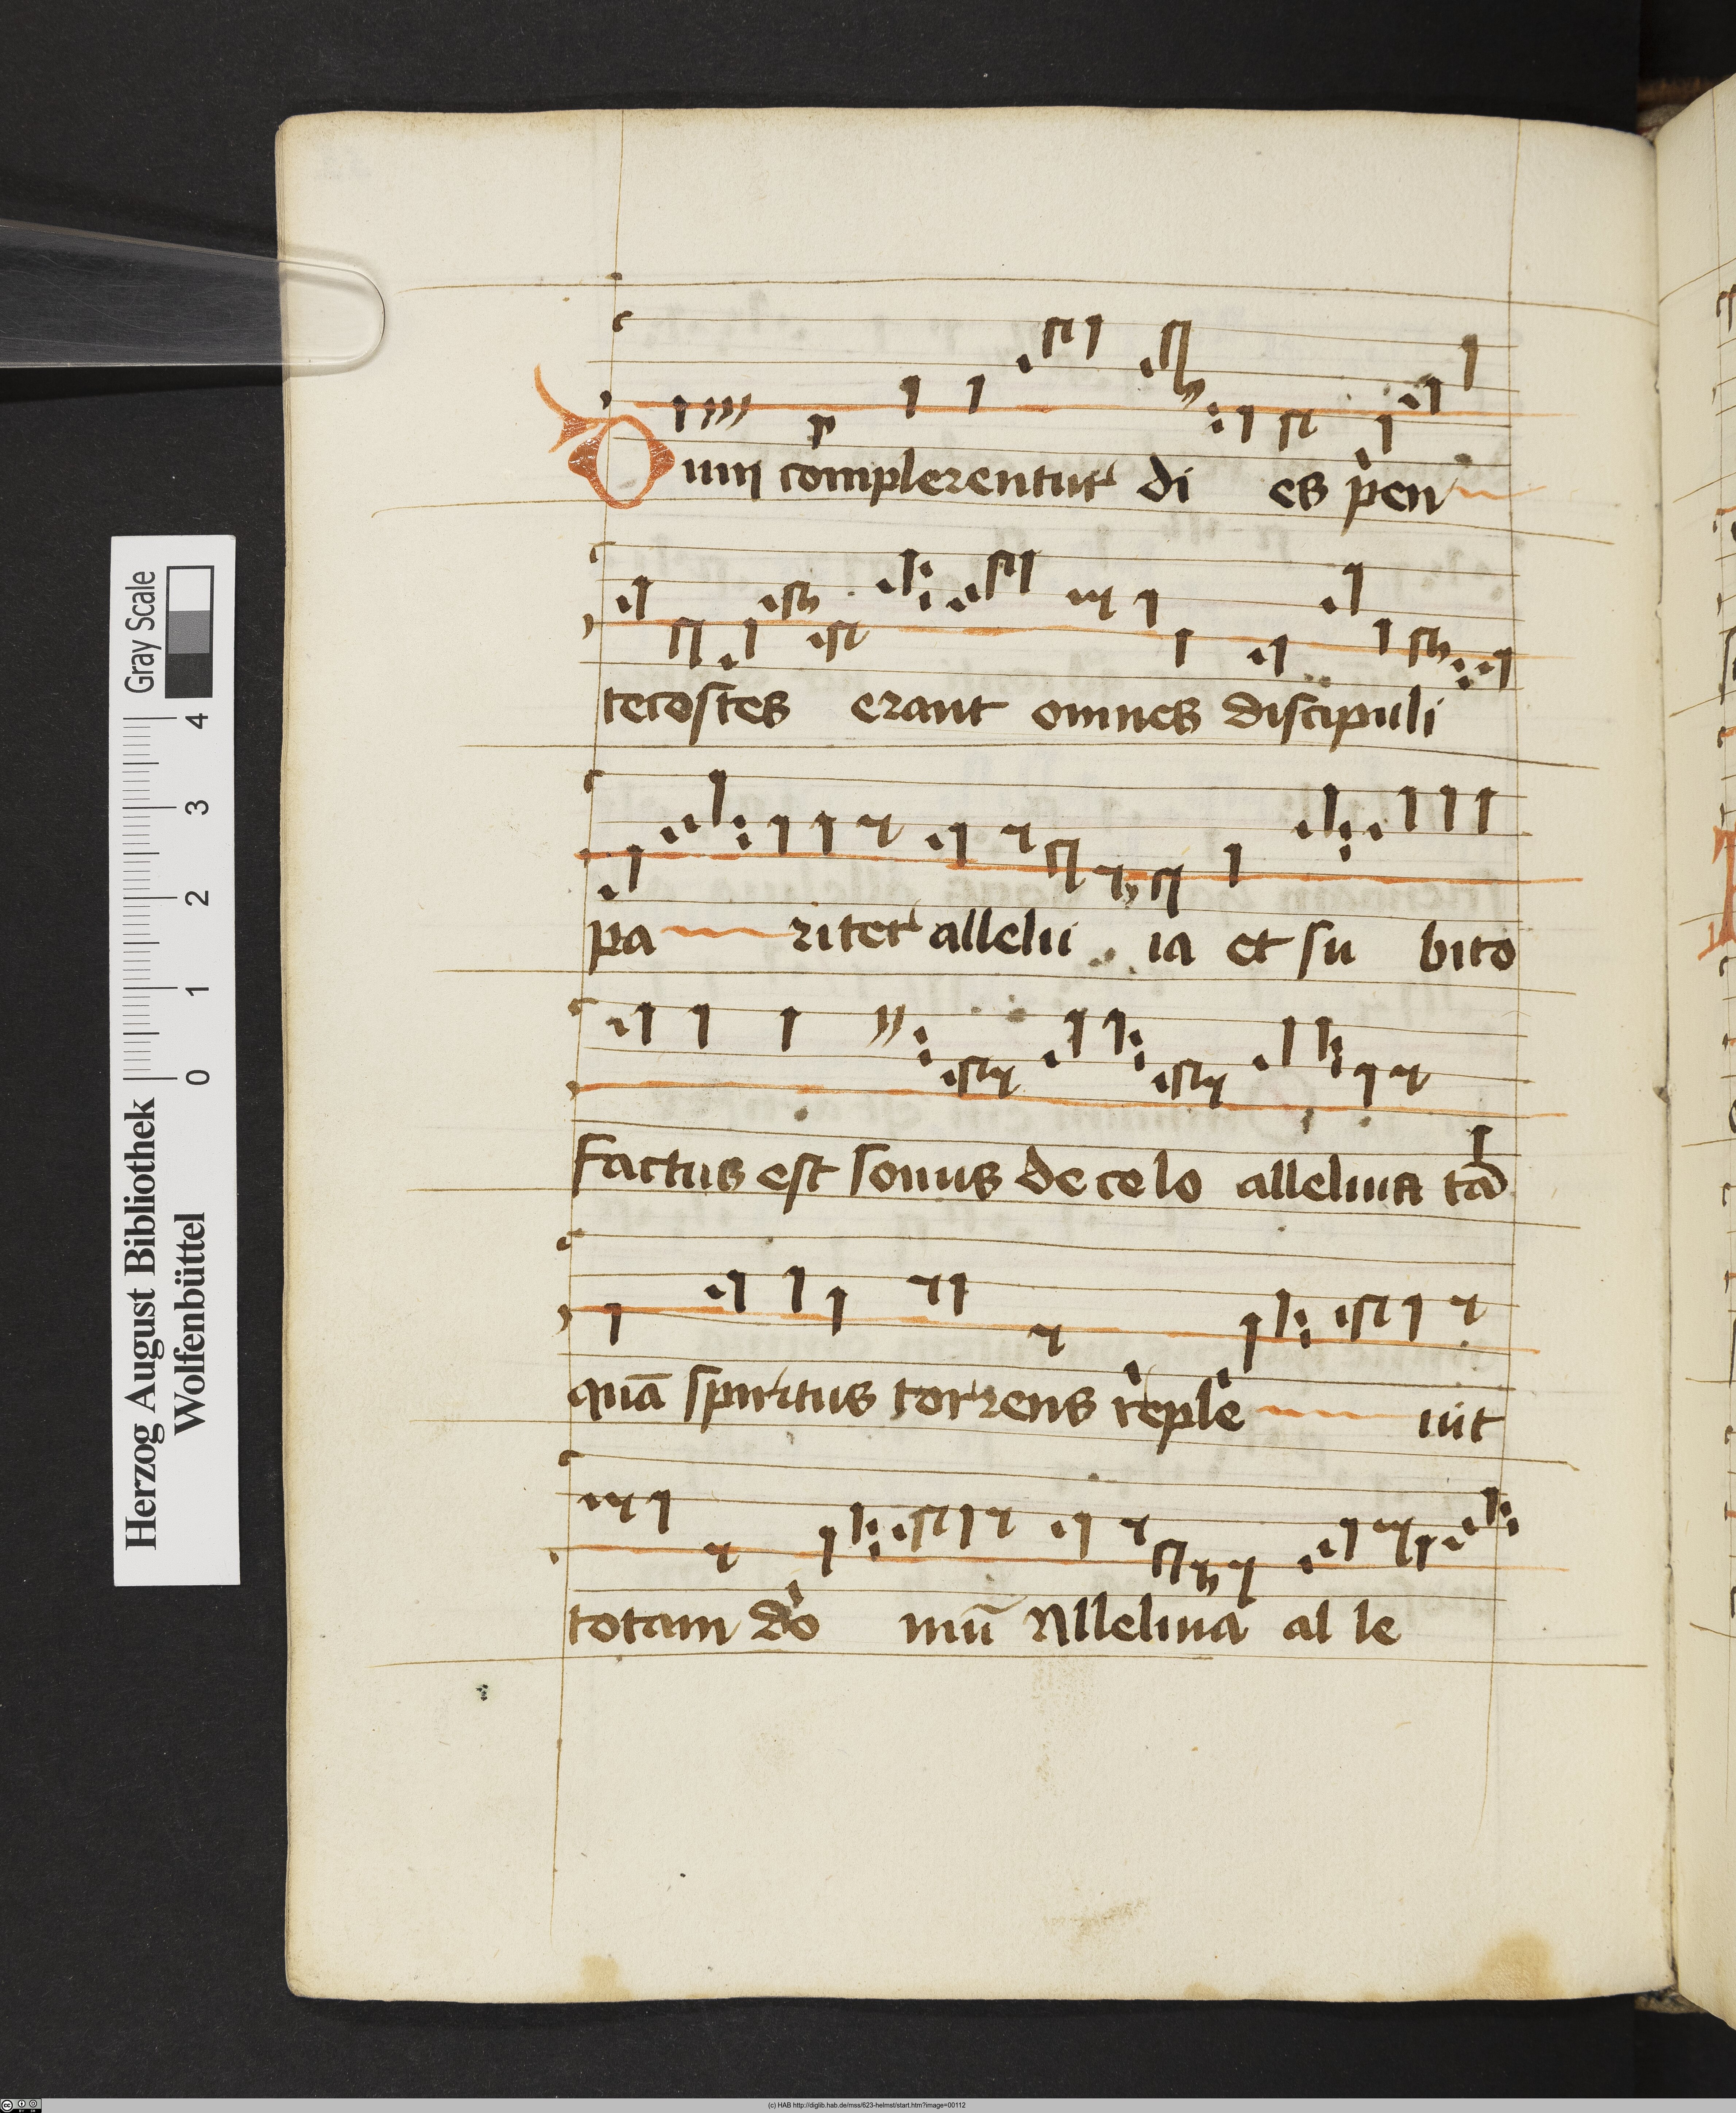 Dum complerentur di es pen
tecostes erant omnes discipuli
pa riter allelu ia et su bito
factus est sonus de celo alleluia tā
quā spiritus torrens reple uit
totam do mū Alleluia al le
Herzog August Bibliothek
Wolfenbüttel
Gray Scale
0 1 2 3 4
(c) HAB http://diglib.hab.de/mss/623-helmst/start.htm?image=00112